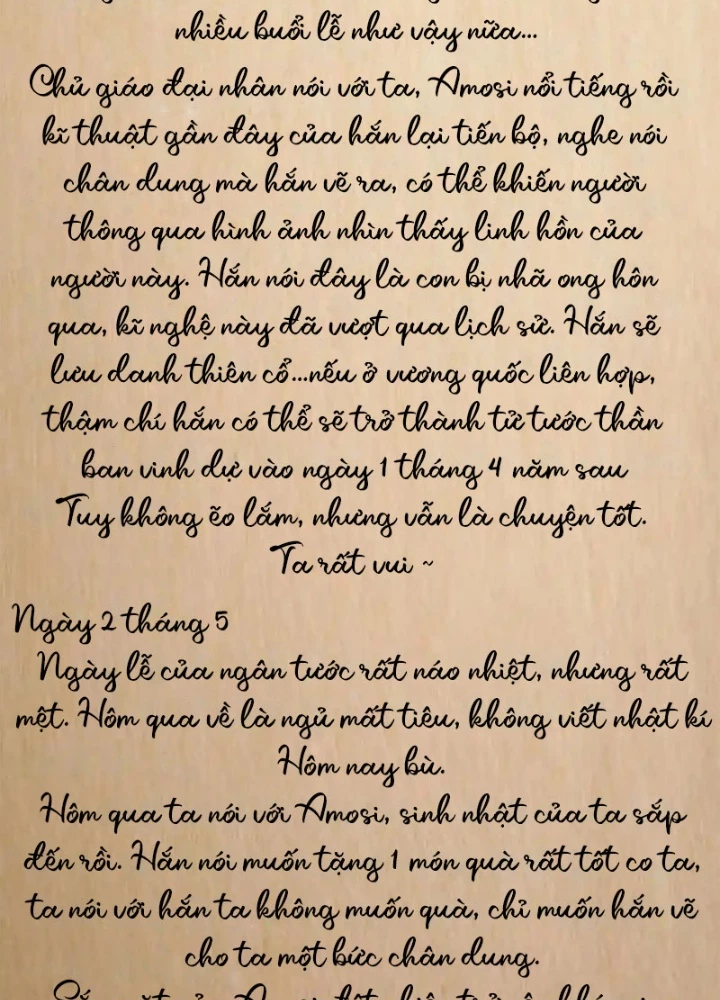 nhiều buổi lễ như vậy nữa...
Chủ giáo đại nhân nói với ta, Amosi nổi tiếng rồi
kĩ thuật gần đây của hắn lại tiến bộ, nghe nói
chân dung mà hắn vẽ ra, có thể khiến người
thông qua hình ảnh nhìn thấy linh hồn của
người này. Hắn nói đây là con bị nhã ong hôn
qua, kĩ nghệ này đã vượt qua lịch sử. Hắn sẽ
lưu danh thiên cổ...nếu ở vương quốc liên hợp,
thậm chí hắn có thể sẽ trở thành tử tước thần
ban vinh dự vào ngày 1 tháng 4 năm sau
Tuy không ẽo lắm, nhưng vẫn là chuyện tốt.
Ta rất vui ~
Ngày 2 tháng 5
Ngày lễ của ngân tước rất náo nhiệt, nhưng rất
mệt. Hôm qua về là ngủ mất tiêu, không viết nhật kí
Hôm nay bù.
Hôm qua ta nói với Amosi, sinh nhật của ta sắp
đến rồi. Hắn nói muốn tặng 1 món quà rất tốt co ta,
ta nói với hắn ta không muốn quà, chỉ muốn hắn vẽ
cho ta một bức chân dung.